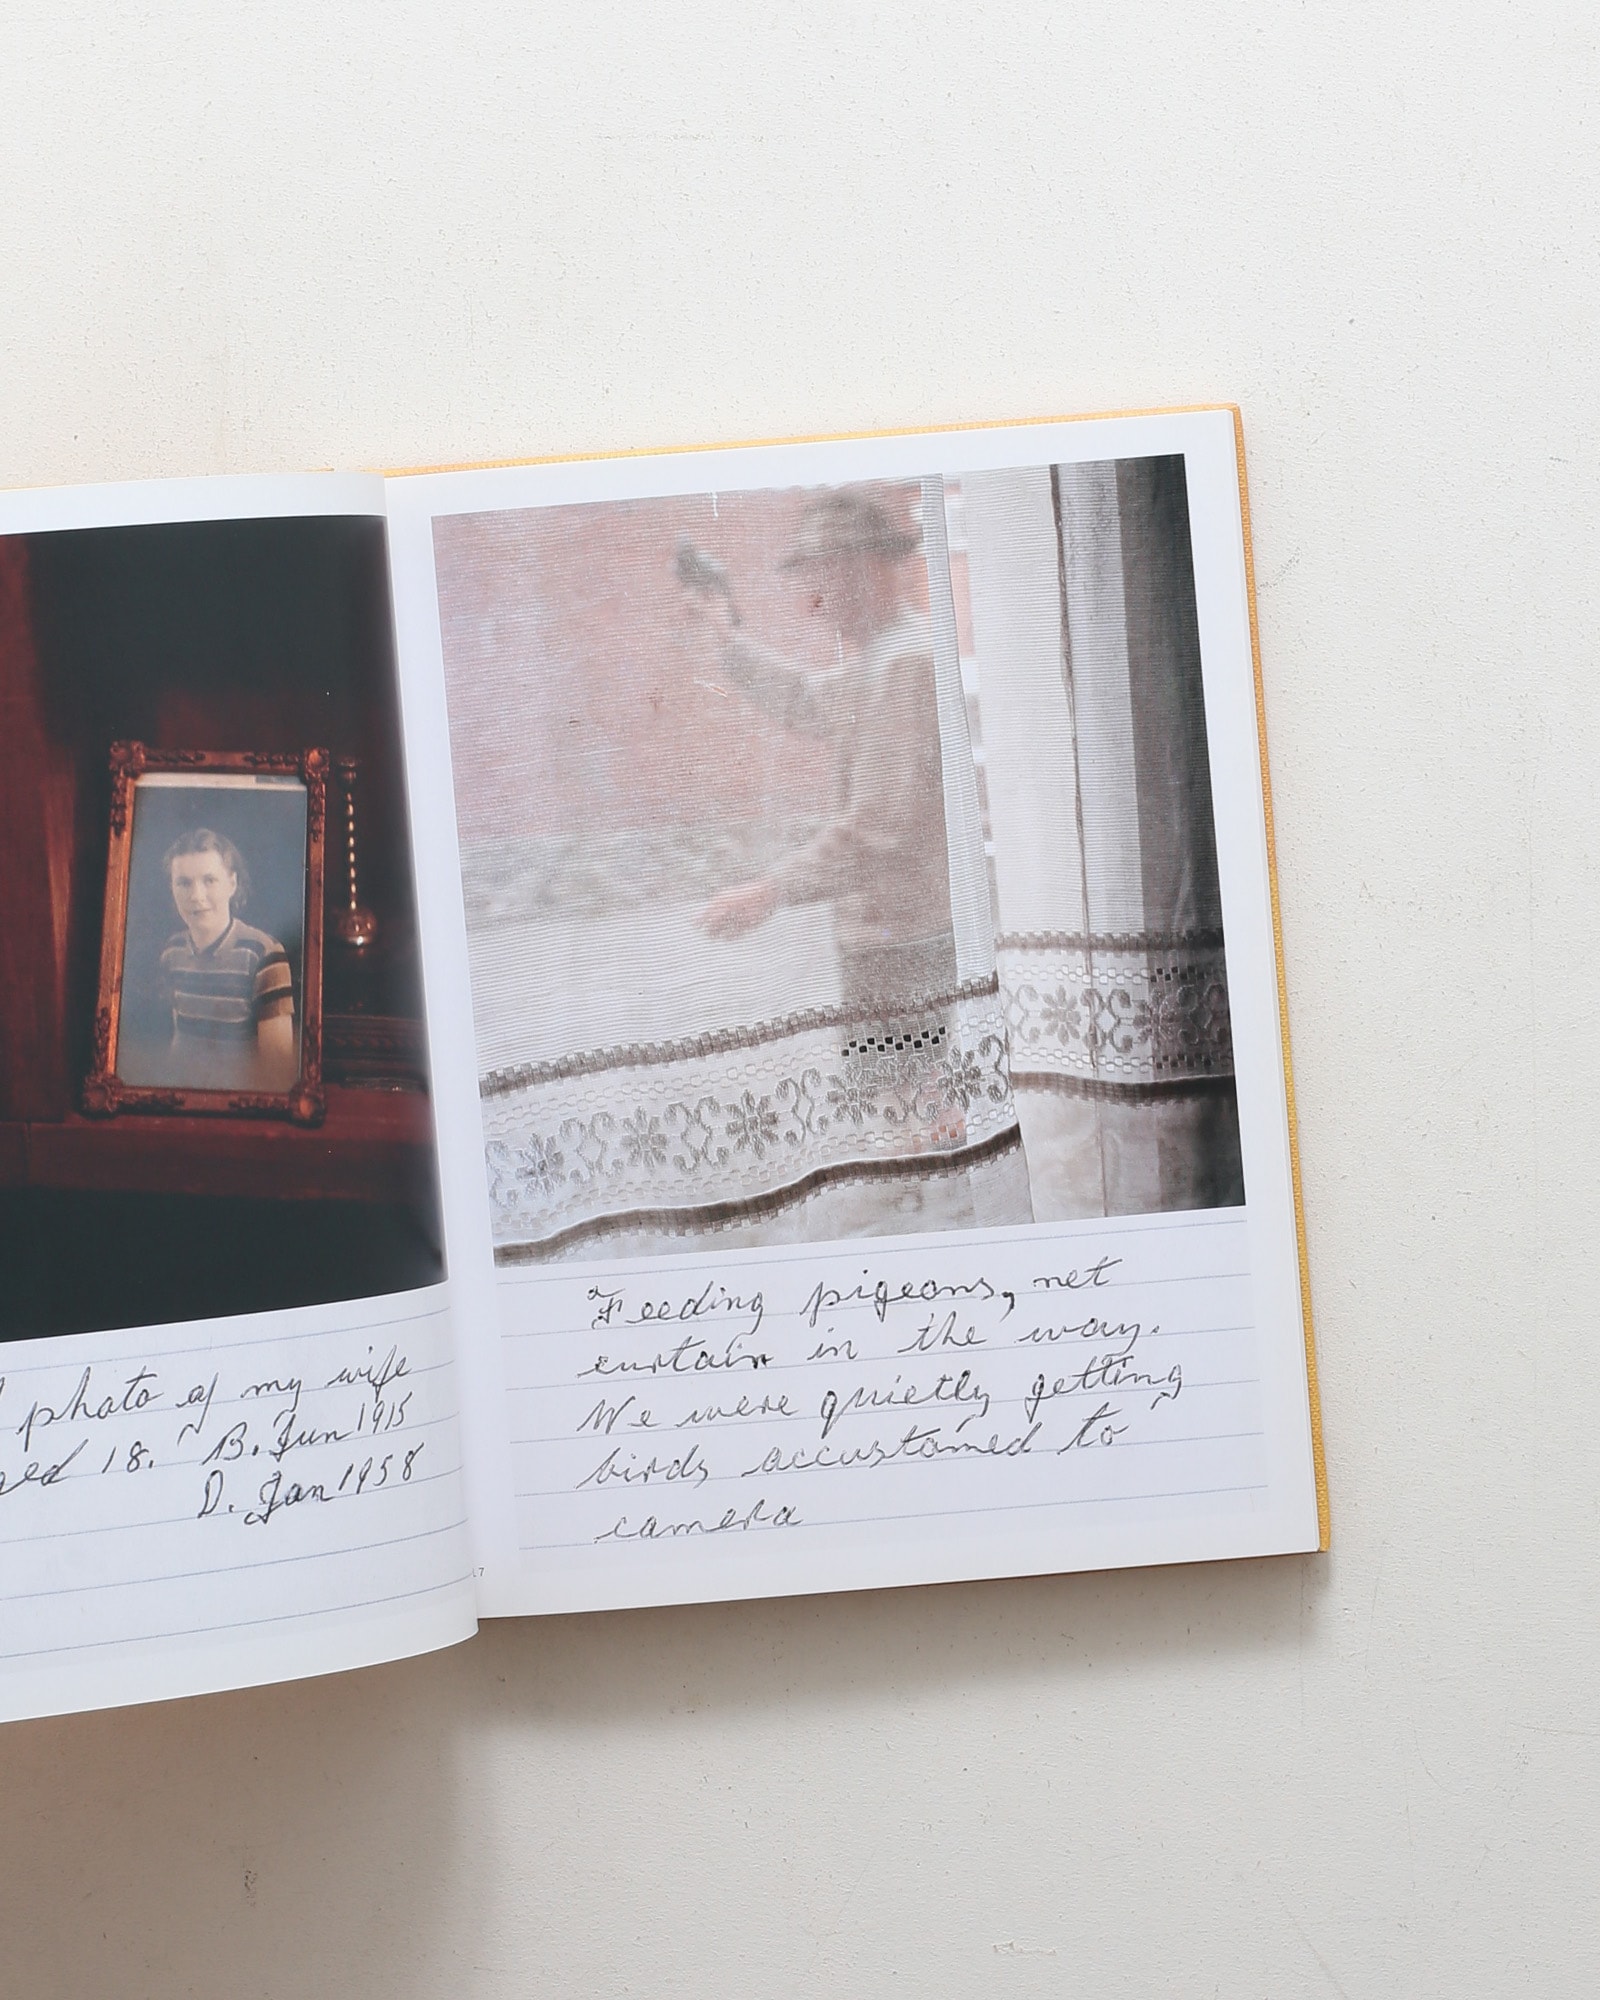 photo of my wife
aged 18. B. Jun 1915
D. Jan 1958
17
Feeding pigeons, net
curtain in the way.
We were quietly getting
birds accustomed to
camera